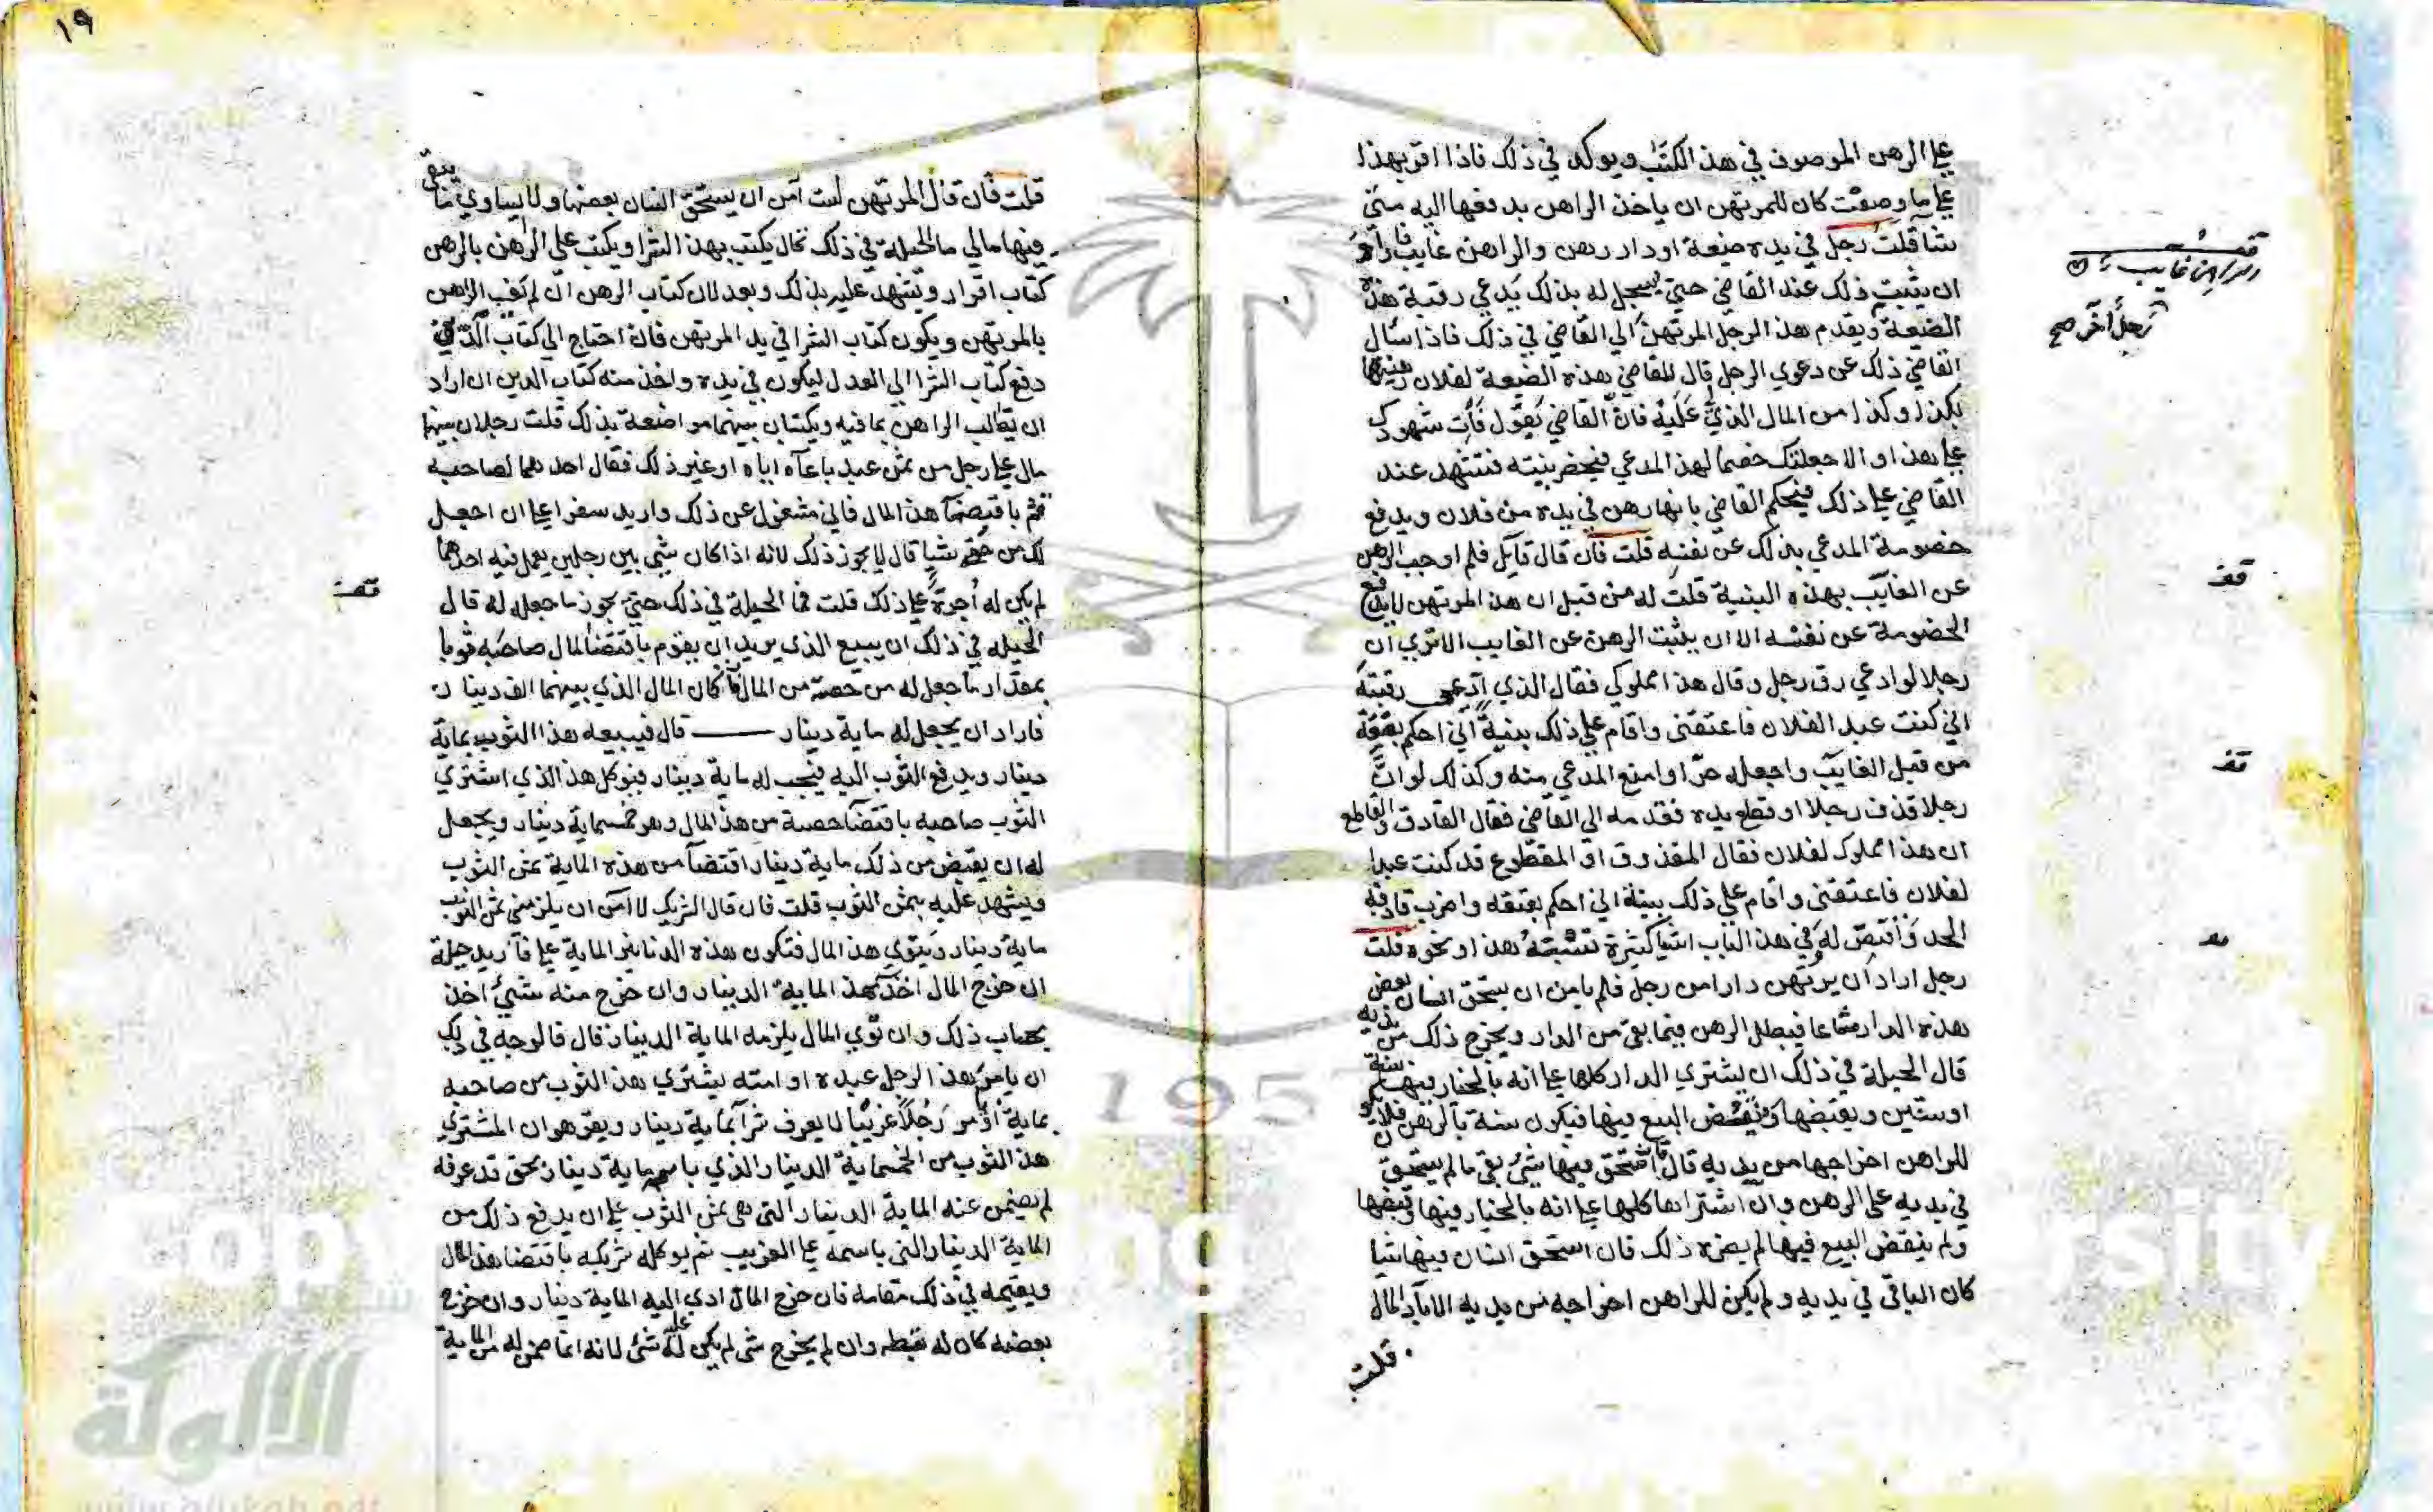 علي الرهن الموصوف في هذا الكتاب ويوكد في ذلك فاذا اقر بهذا
علي ما وصفت كان للمرتهن ان ياخذ الراهن بدفعها اليه متي
شا قلت رجل في يده ضيعة او دار رهن والراهن غايب فاراد
ان يثبت ذلك عند القاضي حتي يسجل له بذلك يدعي رقبة هذه
الضيعة ويقدم هذا الرجل المرتهن الي القاضي في ذلك فاذا سال
القاضي ذلك عن دعوي الرجل قال للقاضي هذه الضيعة لفلان رهنيها
بكذا وكذا من المال الذي عليه فان القاضي يقول فات شهودك
علي هذا او الا جعلتك خصما لهذا المدعي فيحضر بينته فتشهد عند
القاضي علي ذلك فيحكم القاضي بانها رهن في يده من فلان ويدفع
خصومة المدعي بذلك عن نفسه قلت فان قال قايل فلم اوجب الرهن
عن الغايب بهذه البنية قلت له من قبل ان هذا المرتهن لا يدفع
الخصومة عن نفسه الا ان يثبت الرهن عن الغايب الا تري ان
رجلا لو ادعي رق رجل وقال هذا مملوكي فقال الذي ادعي رقبته
اني كنت عبد الفلان فاعتقني واقام علي ذلك بينة اني احكم بعتقه
من قبل الغايب واجعله حرا وامنع المدعي منه وكذلك لو ان
رجلا قذف رجلا او قطع يده فقدمه الي القاضي فقال القاذف والقاطع
ان هذا مملوك لفلان فقال المقذوف او المقطوع قد كنت عبدا
لفلان فاعتقني واقام علي ذلك بينة اني احكم بعتقه واضرب قاذفه
الحد واقتص له وفي هذا الباب اشيا كثيرة تشبه هذا او نحوه قلت
رجل اراد ان يرتهن دارا من رجل فلم يامن ان يستحق انسان بعض
هذه الدار مشاعا فيبطل الرهن فيما بقي من الدار ويخرج ذلك من يديه
قال الحيلة في ذلك ان يشتري الدار كلها علي انه بالخيار فيها سنة
او سنتين ويقبضها وينقض البيع فيها فيكون سنة بالرهن فلا يكون
للراهن اخراجها من يديه قال فاستحق فيها شي بقي ما لم يستحق
في يديه علي الرهن وان اشتراها كلها علي انه بالخيار فيها وقبضها
ولم ينقض البيع فيها لم يضره ذلك فان استحق انسان فيها شيا
كان الباقي في يديه ولم يكن للراهن اخراجه من يديه الا باداء المال
قلت
الراهن غايب
رجل اخر صح
قف
قف
١٩
قلت فان قال المرتهن لست آمن ان يستحق انسان بعضها ولا يساوي ما يبقي
فيها مالي ما الحيلة في ذلك قال يكتب بهذا الشرا ويكتب علي الراهن بالرهن
كتاب اقرار ويشهد عليه بذلك ويعدلان كتاب الرهن ان لم يف الراهن
بالمرتهن ويكون كتاب الشرا في يد المرتهن فان احتاج الي كتاب الدين
دفع كتاب الشرا الي العدل ليكون في يده واخذ منه كتاب الدين ان اراد
ان يطالب الراهن بما فيه ويكتبان بينهما مواضعة بذلك قلت رجلان بينهما
مال علي رجل من ثمن عبد باعاه اياه او غير ذلك فقال احدهما لصاحبه
قم باقتضا هذا المال فاني مشغول عن ذلك واريد سفرا علي ان اجعل
لك من حقي شيا قال لا يجوز ذلك لانه اذا كان شي بين رجلين يعمل فيه احدهما
لم يكن له اجرة علي ذلك قلت فما الحيلة في ذلك حتي يجوز ما جعله له قال
الحيله في ذلك ان يبيع الذي يريد ان يقوم باقتضا المال صاحبه ثوبا
بمقدار ما جعل له من حصته من المال فان كان المال الذي بينهما الف دينار
فاراد ان يجعل له ماية دينار قال فيبيعه هذا الثوب بماية
دينار ويدفع الثوب اليه فيجب له ماية دينار فيوكل هذا الذي اشتري
الثوب صاحبه باقتضا حصته من هذا المال وهو خمسماية دينار ويجعل
له ان يقبض من ذلك ماية دينار اقتضا من هذه الماية ثمن الثوب
ويشهد عليه بثمن الثوب قلت فان قال الشريك لا آمن ان يلزمني ثمن الثوب
ماية دينار ويتوي هذا المال فتكون هذه الدنانير الماية علي فاريد حيلة
ان خرج المال اخذ هذا الماية الدينار وان خرج منه شي اخذ
بحساب ذلك وان توي المال يلزمه الماية الدينار قال فالوجه في ذلك
ان يامر هذا الرجل عبده او امته يشتري هذا الثوب من صاحبه
بماية او يامر رجلا غريبا لا يعرف شرا بماية دينار ويقر هو ان المشتري
هذا الثوب من الخمسماية الدينار الذي باسمه ماية دينار بحق قد عرفه
لم يضمن عنه الماية الدينار التي هي ثمن الثوب علي ان يدفع ذلك من
الماية الدينار التي باسمه علي الغريب ثم يوكله شريكه باقتضا هذا المال
ويقيمه في ذلك مقامه فان خرج المال ادي اليه الماية دينار وان خرج
بعضه كان له بقسطه وان لم يخرج شي لم يكن له عليه شي لانه انما ضمن له من الماية
قف